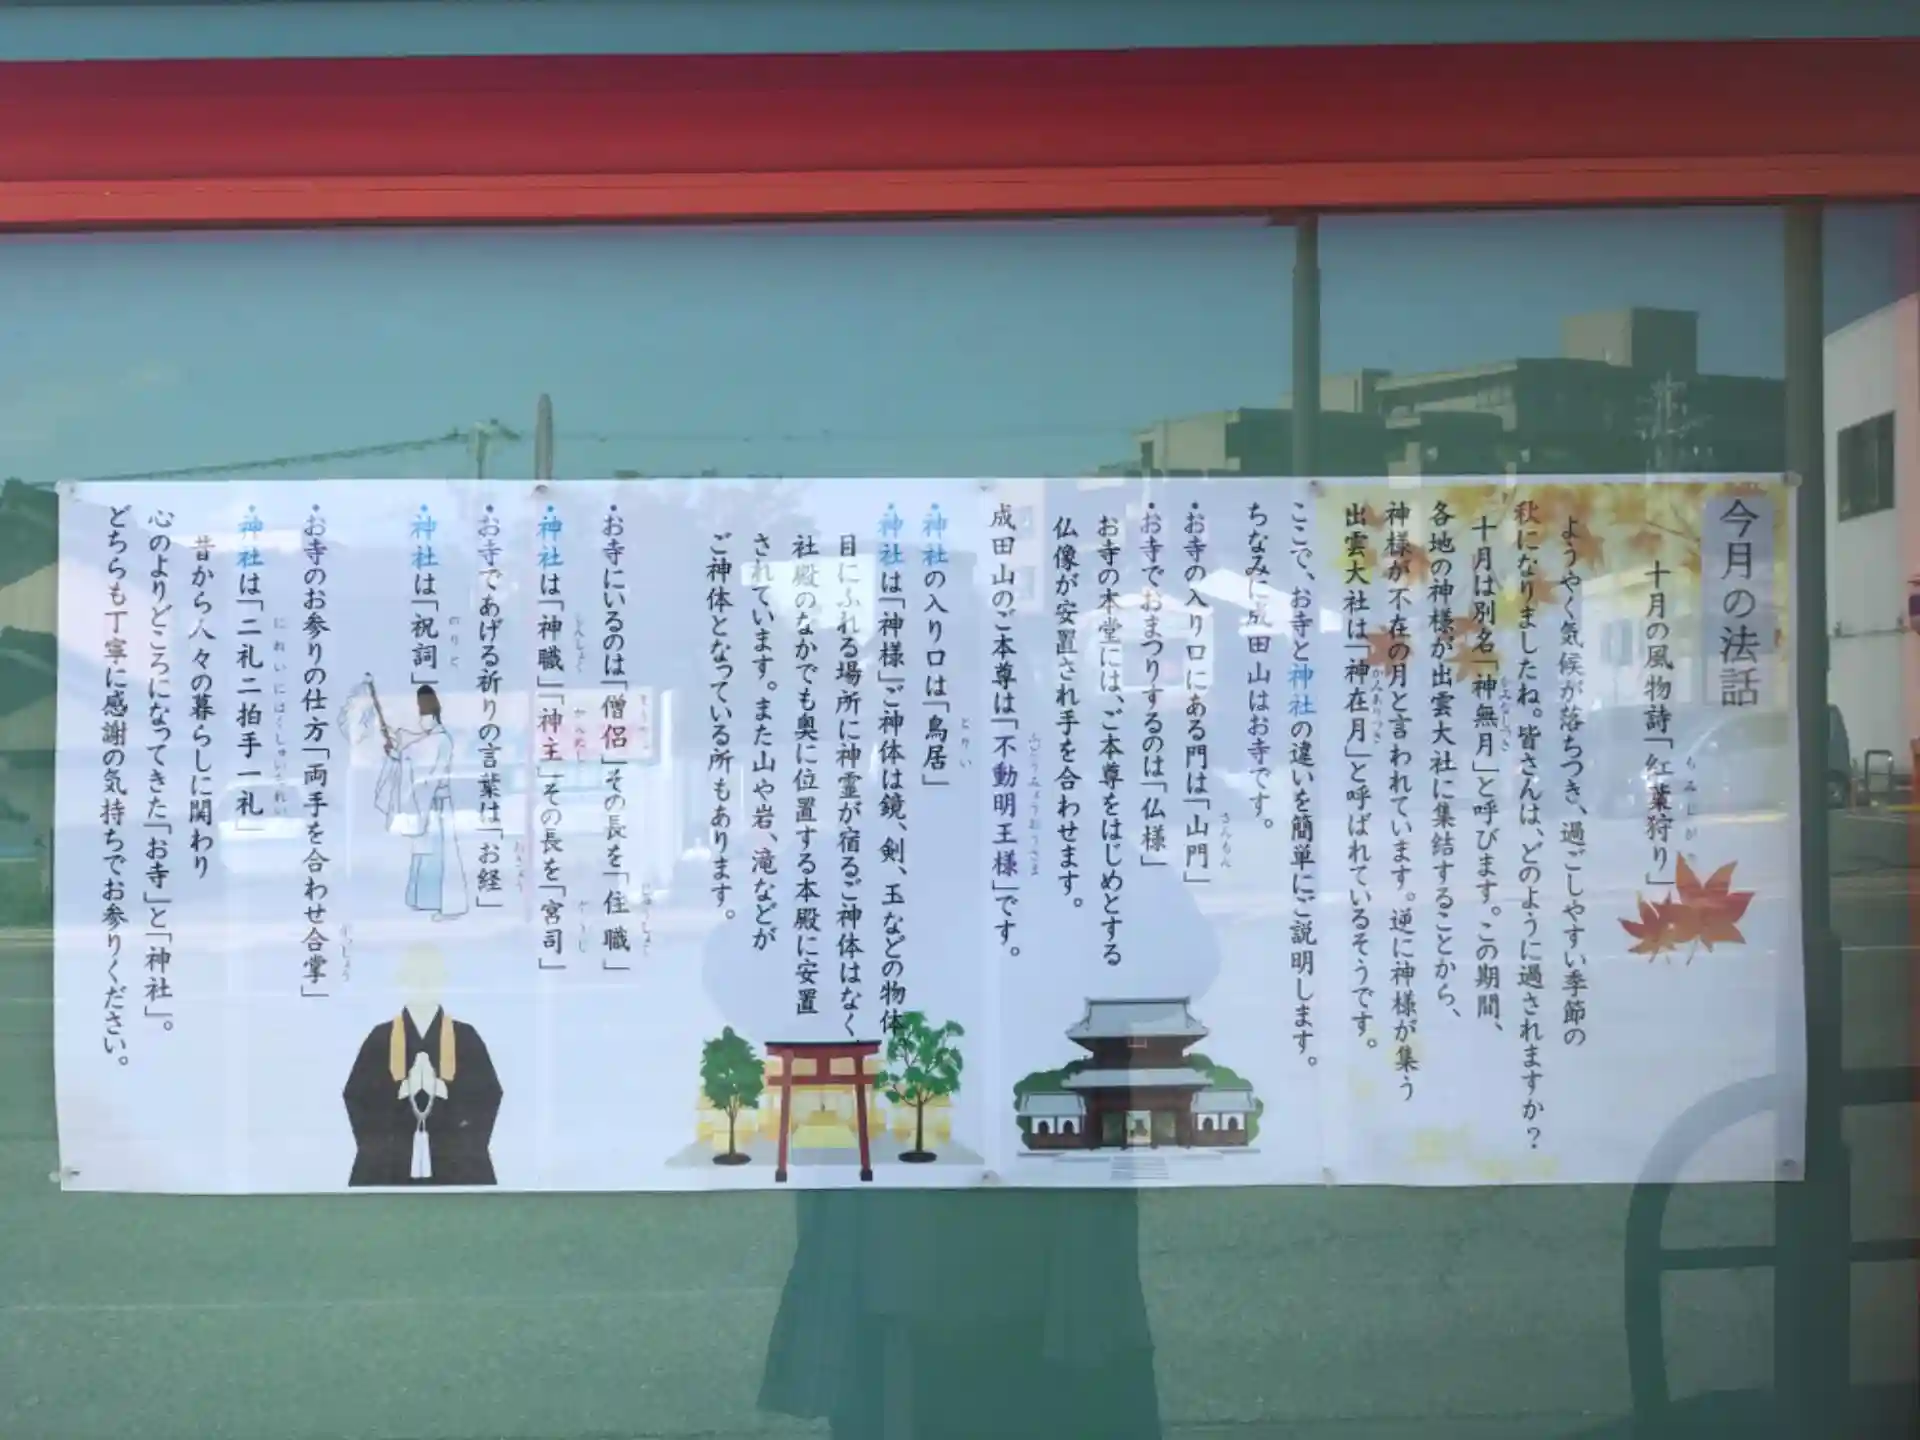 今月の法話
十月の風物詩「紅葉狩り」
ようやく気候が落ちつき、過ごしやすい季節の
秋になりましたね。皆さんは、どのように過されますか？
十月は別名「神無月」と呼びます。この期間、
各地の神様が出雲大社に集結することから、
神様が不在の月と言われています。逆に神様が集う
出雲大社は「神在月」と呼ばれているそうです。
ここで、お寺と神社の違いを簡単にご説明します。
ちなみに成田山はお寺です。
・お寺の入り口にある門は「山門」
・お寺でおまつりするのは「仏様」
お寺の本堂には、ご本尊をはじめとする
仏像が安置され手を合わせます。
成田山のご本尊は「不動明王様」です。
・神社の入り口は「鳥居」
・神社は「神様」ご神体は鏡、剣、玉などの物体
目にふれる場所に神霊が宿るご神体はなく、
社殿のなかでも奥に位置する本殿に安置
されています。また山や岩、滝などが
ご神体となっている所もあります。
・お寺にいるのは「僧侶」その長を「住職」
・神社は「神職」「神主」その長を「宮司」
・お寺であげる祈りの言葉は「お経」
・神社は「祝詞」
・お寺のお参りの仕方「両手を合わせ合掌」
・神社は「二礼二拍手一礼」
昔から人々の暮らしに関わり
心のよりどころになってきた「お寺」と「神社」。
どちらも丁寧に感謝の気持ちでお参りください。